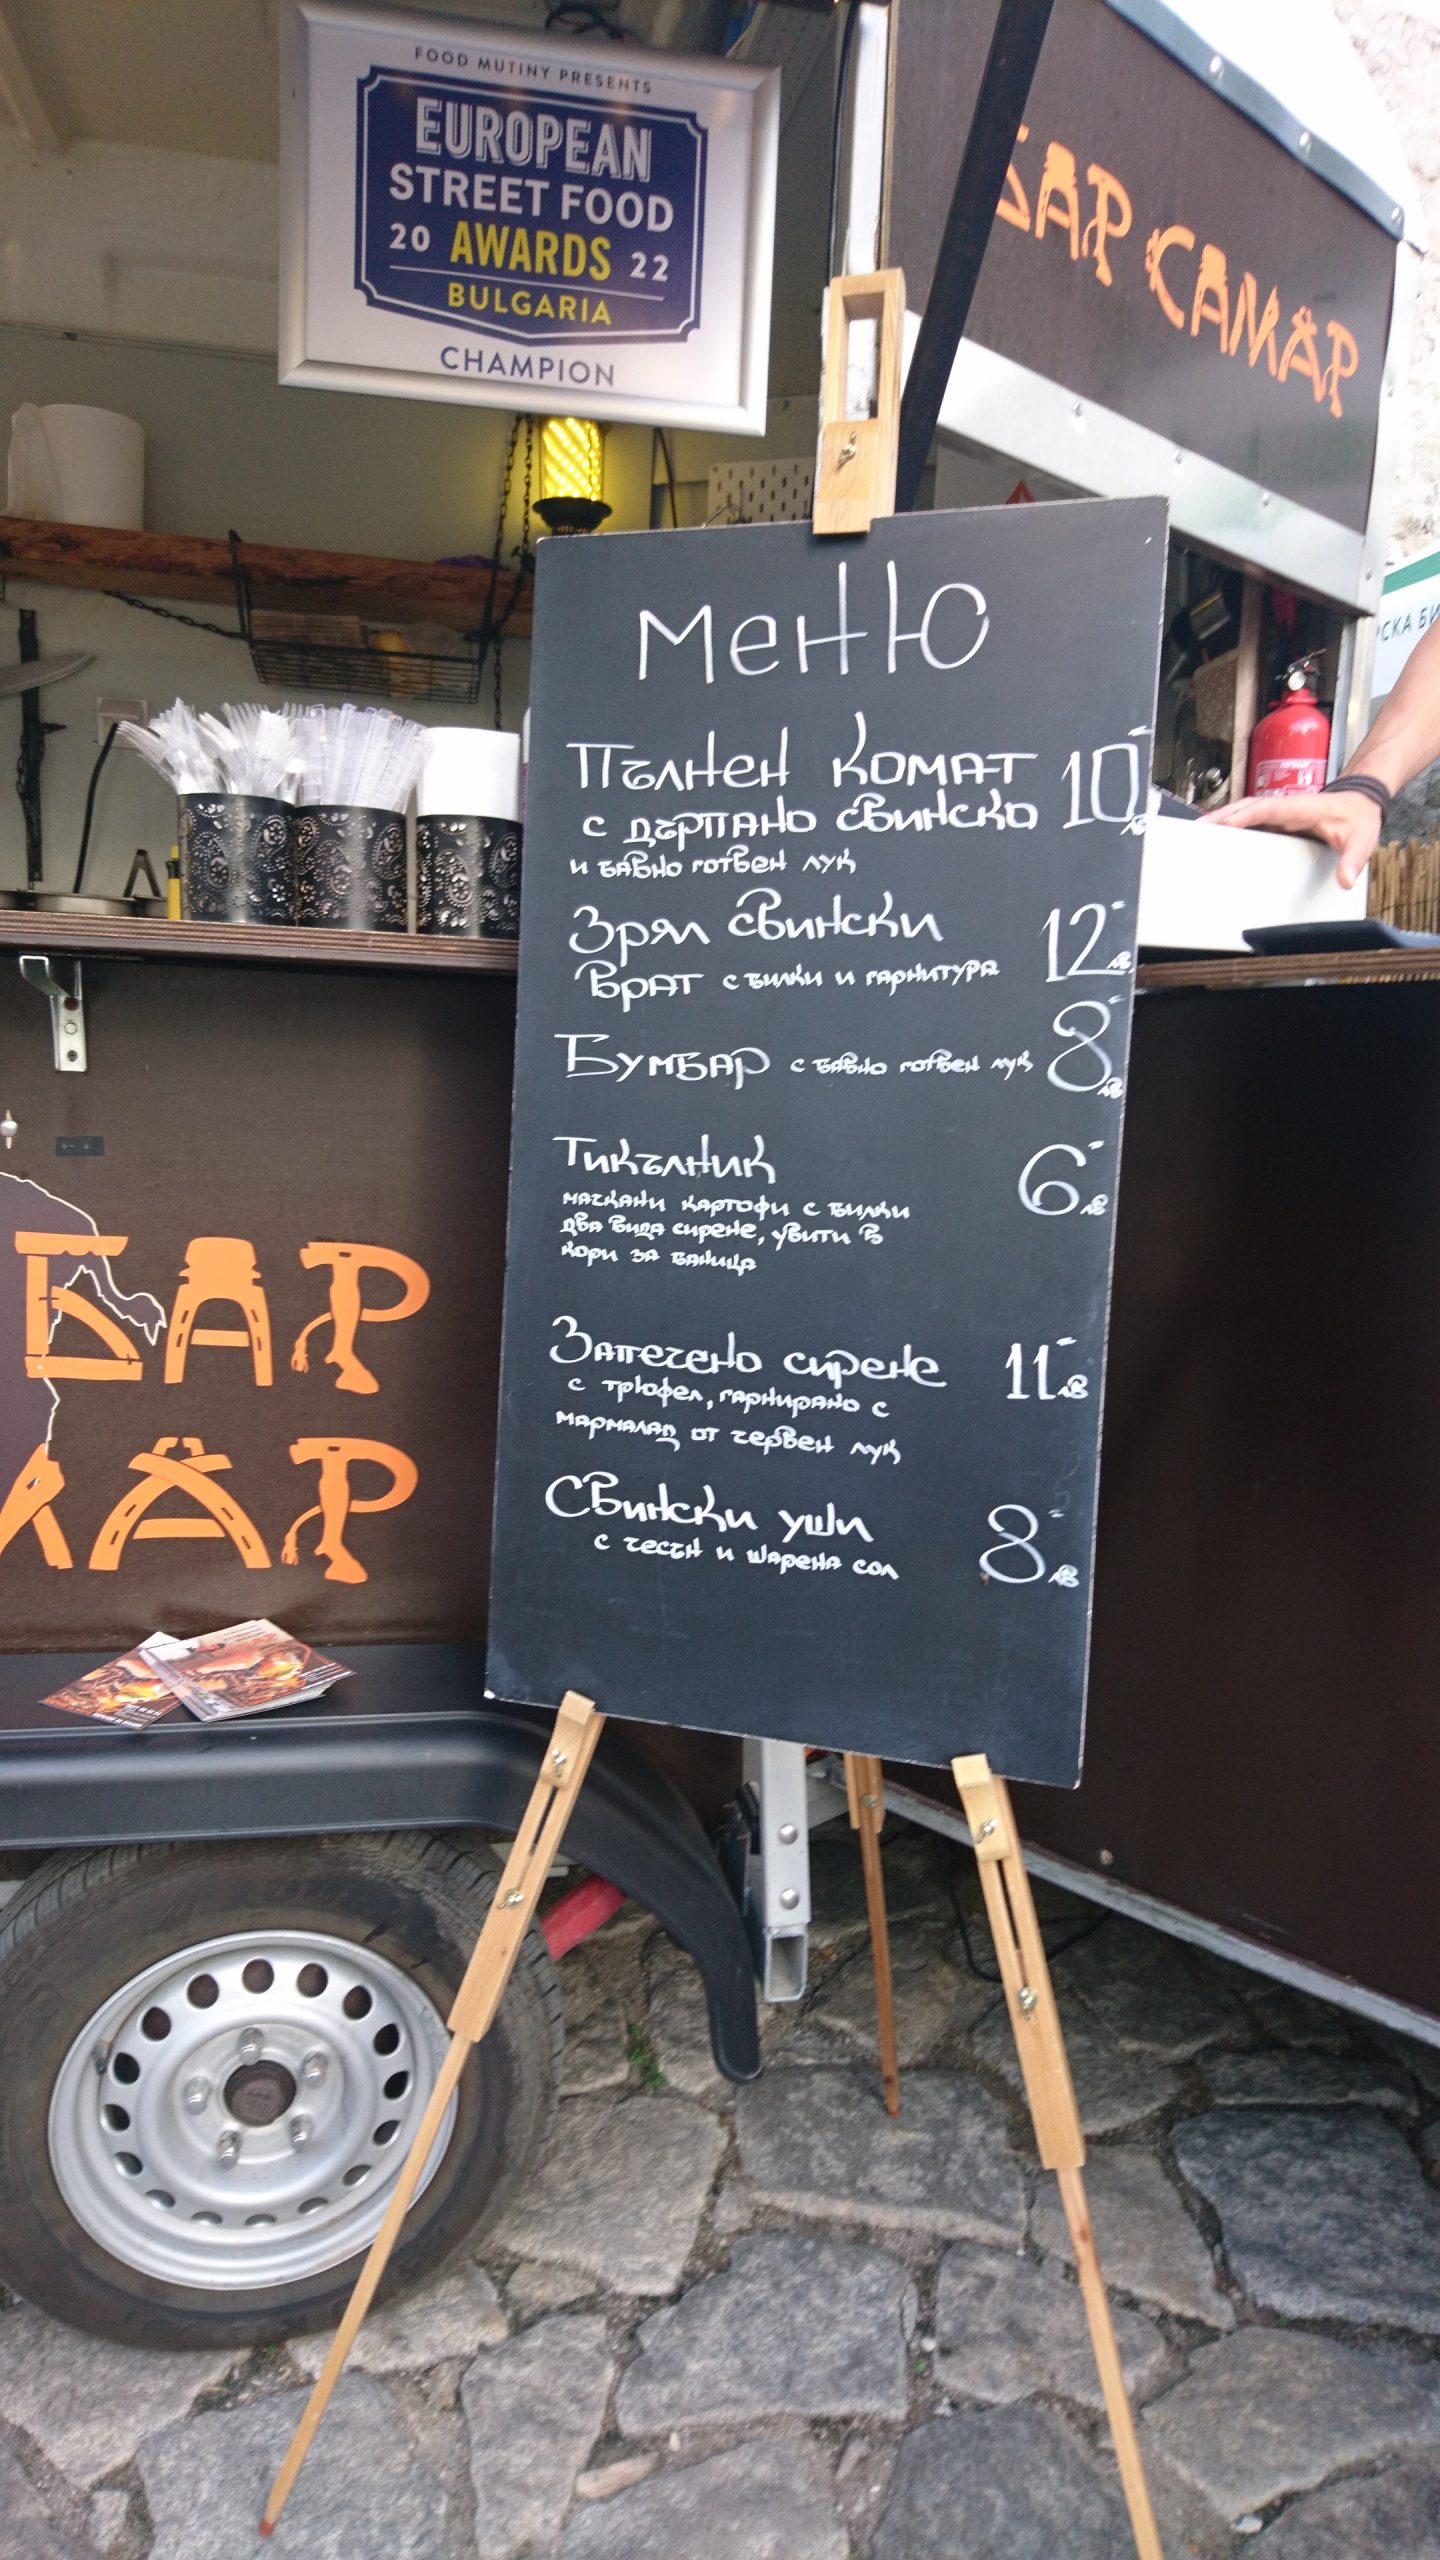 FOOD MUTINY PRESENTS
EUROPEAN
STREET FOOD
20 AWARDS 22
BULGARIA
CHAMPION
БАР САМАР
РСКА БИ
Меню
Пълнен комат 10-
с дърпано свинско лв
и бавно готвен лук
Зрял свински 12-
врат с билки и гарнитура лв
Бумбар с бавно готвен лук 8- лв
Тикълник 6- лв
мачкани картофи с билки
два вида сирене, увити в
кори за баница
Запечено сирене 11- лв
с трюфел, гарнирано с
мармалад от червен лук
Свински уши 8- лв
с чесън и шарена сол
БАР
МАР